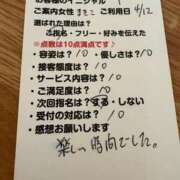 お客様のイニシャル
ご案内女性 まさこ ご利用日 4/12
選ばれた理由は?
ご指名・フリー・好みを伝えた
※点数は10点満点です♪
・容姿は? 10 ・優しさは? 10
・接客態度は? 10
・サービス内容は? 10
・ご満足度は? 10
・次回指名は? する・しない
・受付の対応は? 10
感想お願いします
楽しい時間でした。